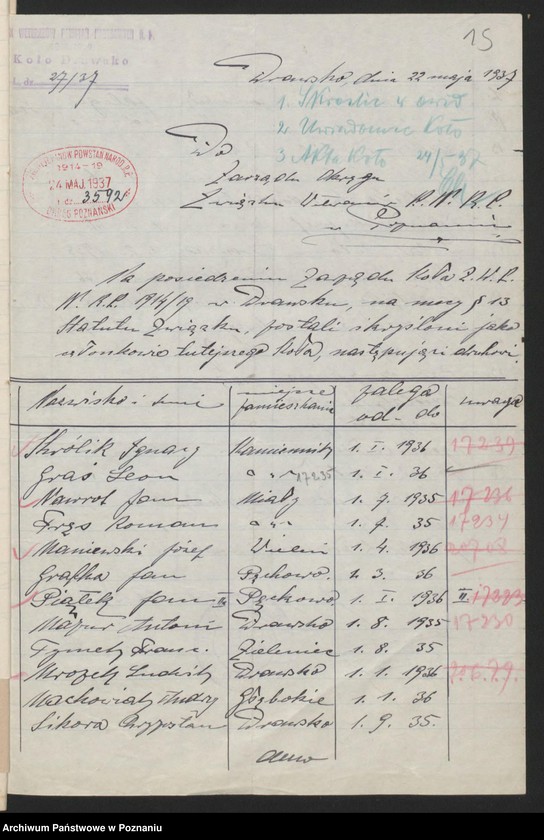 15
Koło Drawsko
L. dz. 27/37
Drawsko, dnia 22 maja 1937
1. Skreślić z ewid.
2. Uwiadomić Koło
3 Akta Koło 24/5 37
Do
Zarządu Okręgu
Związku Weteranów P. N. R. P.
w Poznaniu
POWSTAŃ NAROD. R.P.
1914-19
24 MAJ. 1937
L. dz. 3592
OKRĘG POZNAŃSKI
Na posiedzeniu Zarządu Koła Z. W. P.
N. R. P. 1914/19 w Drawsku, na mocy § 13
Statutu Związku, zostali skreśleni jako
członkowie tutejszego Koła, następujący druhowie.
Nazwisko i imię miejsce zamieszkania zalega od - do uwaga
Królik Ignacy Kamiennik 1. I. 1936 17239
Graś Leon " " 17235 1. I. 36
Nawrot Jan Miały 1. 7. 1935 17236
Frąs Roman " " 1. 7. 35 17234
Maniewski Józef Wieleń 1. 4. 1936
Grafka Jan Pęckowo. 1. 3. 36
Piątek Jan II. Pęckowo 1. I. 1936 II.
Mazur Antoni Drawsko 1. 8. 1935 17230
Tymek Franc. Zieleniec 1. 8. 35
Mrozek Ludwik Drawsko 1. 1. 1936
Maćkowiak Andrzej Głębokie 1. 1. 36
Sikora Chryzostom Drawsko 1. 9. 35.
Archiwum Państwowe w Poznaniu